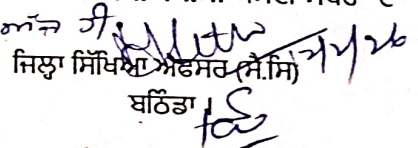 ਅੱਜ ਹੀ
ਜਿਲ੍ਹਾ ਸਿੱਖਿਆ ਅਫਸਰ (ਸੈ.ਸਿ)
ਬਠਿੰਡਾ